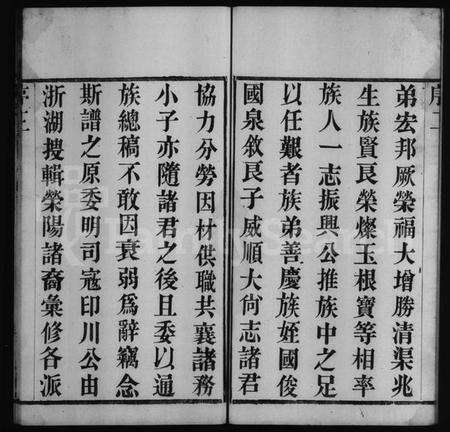 序二
弟宏邦厥榮福大增勝清渠兆
生族賢良榮燦玉根寶等相率
族人一志振興公推族中之足
以任艱者族弟善慶族姪國俊
國泉敘良子威順大尙志諸君
協力分勞因材供職共襄諸務
小子亦隨諸君之後且委以通
族總稿不敢因衰弱爲辭竊念
斯譜之原委明司寇印川公由
浙湖搜輯榮陽諸裔彙修各派
序三